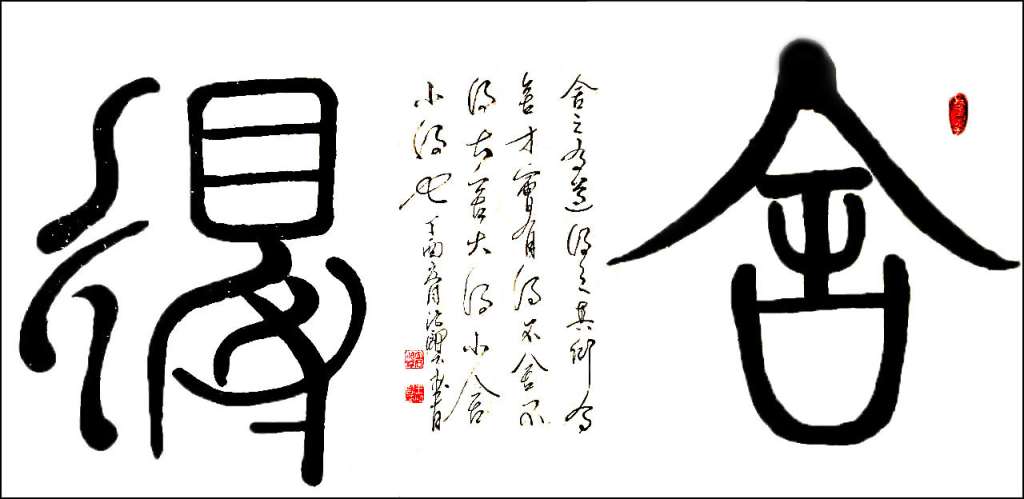 舍
舍之为道得之其为
舍才會有得不舍不
得大舍大得小舍
小得也 丁酉月書
得